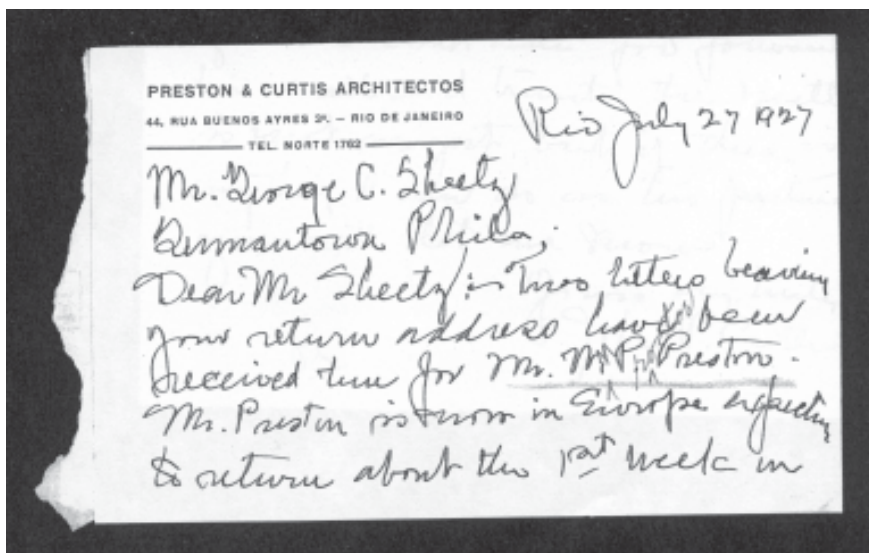 PRESTON & CURTIS ARCHITECTOS
44, RUA BUENOS AYRES 2º. – RIO DE JANEIRO
TEL. NORTE 1762
Rio July 27 1927
Mr. George C. Sheetz
Germantown Phila,
Dear Mr Sheetz:– Two letters bearing
your return address have been
received here for Mr. Preston.
Mr. Preston is now in Europe expecting
to return about the 1st week in